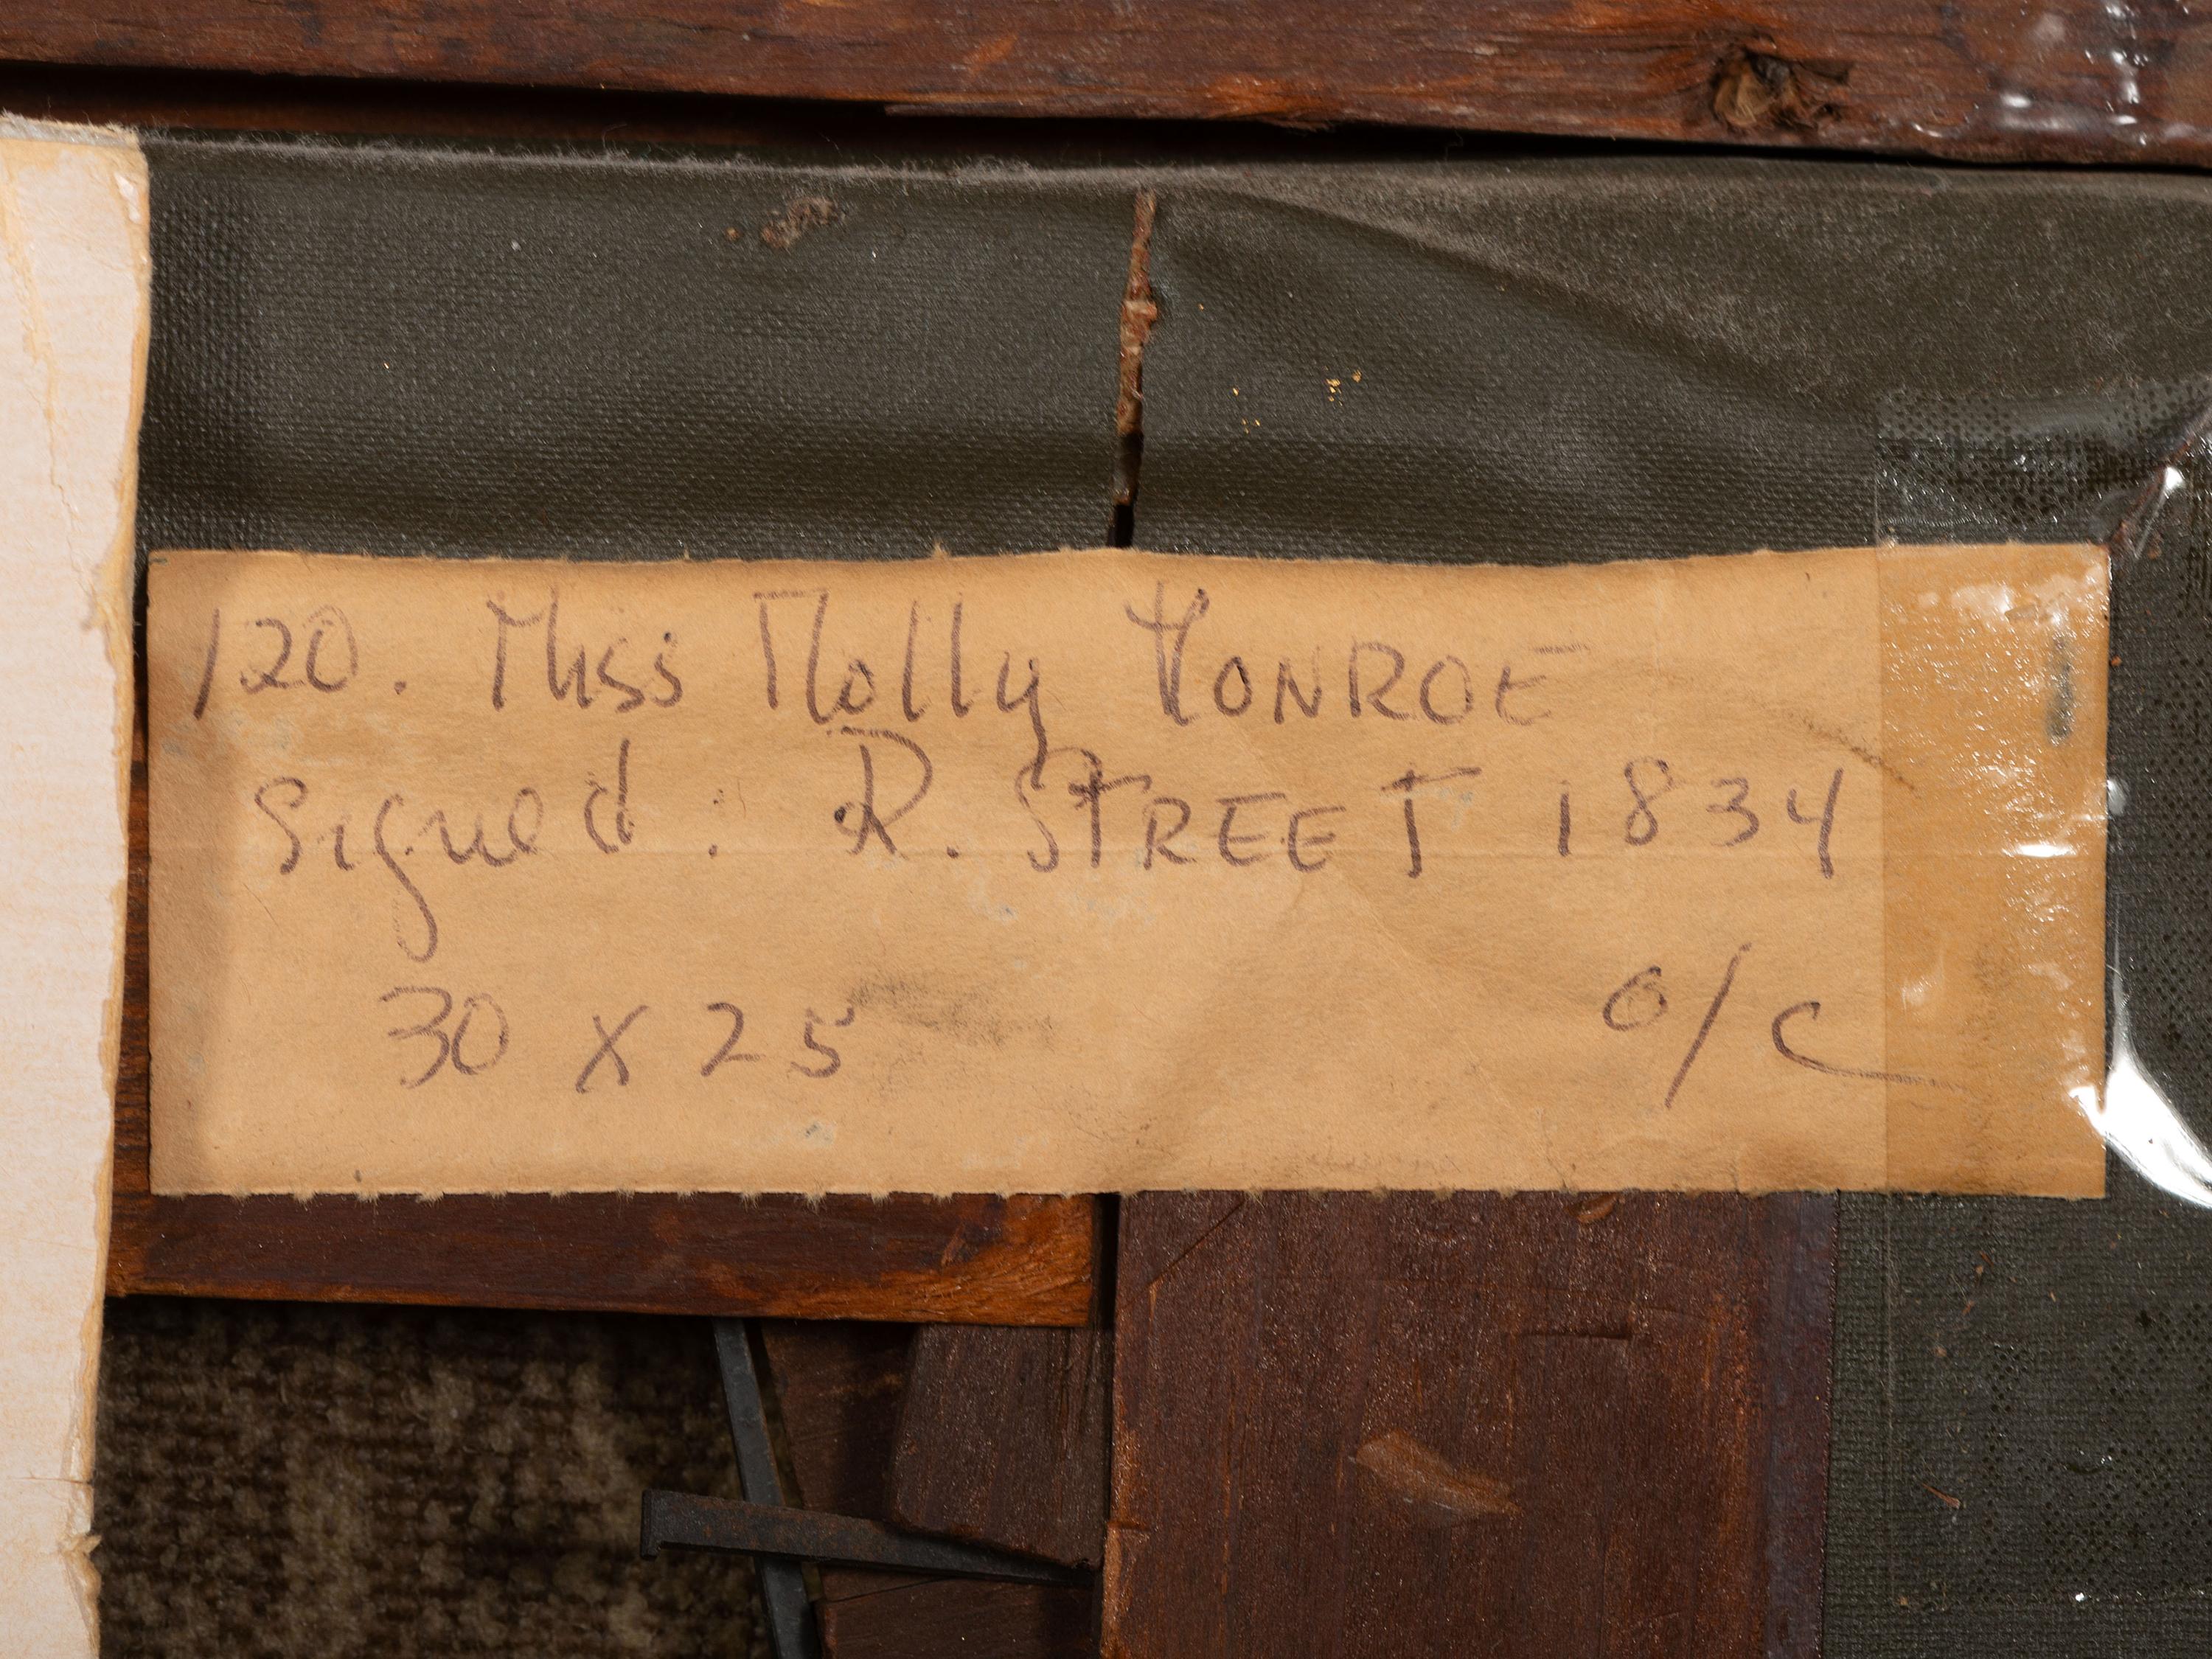 120. Miss Molly MONROE
Signed: R. STREET 1834
30 x 25 o/c